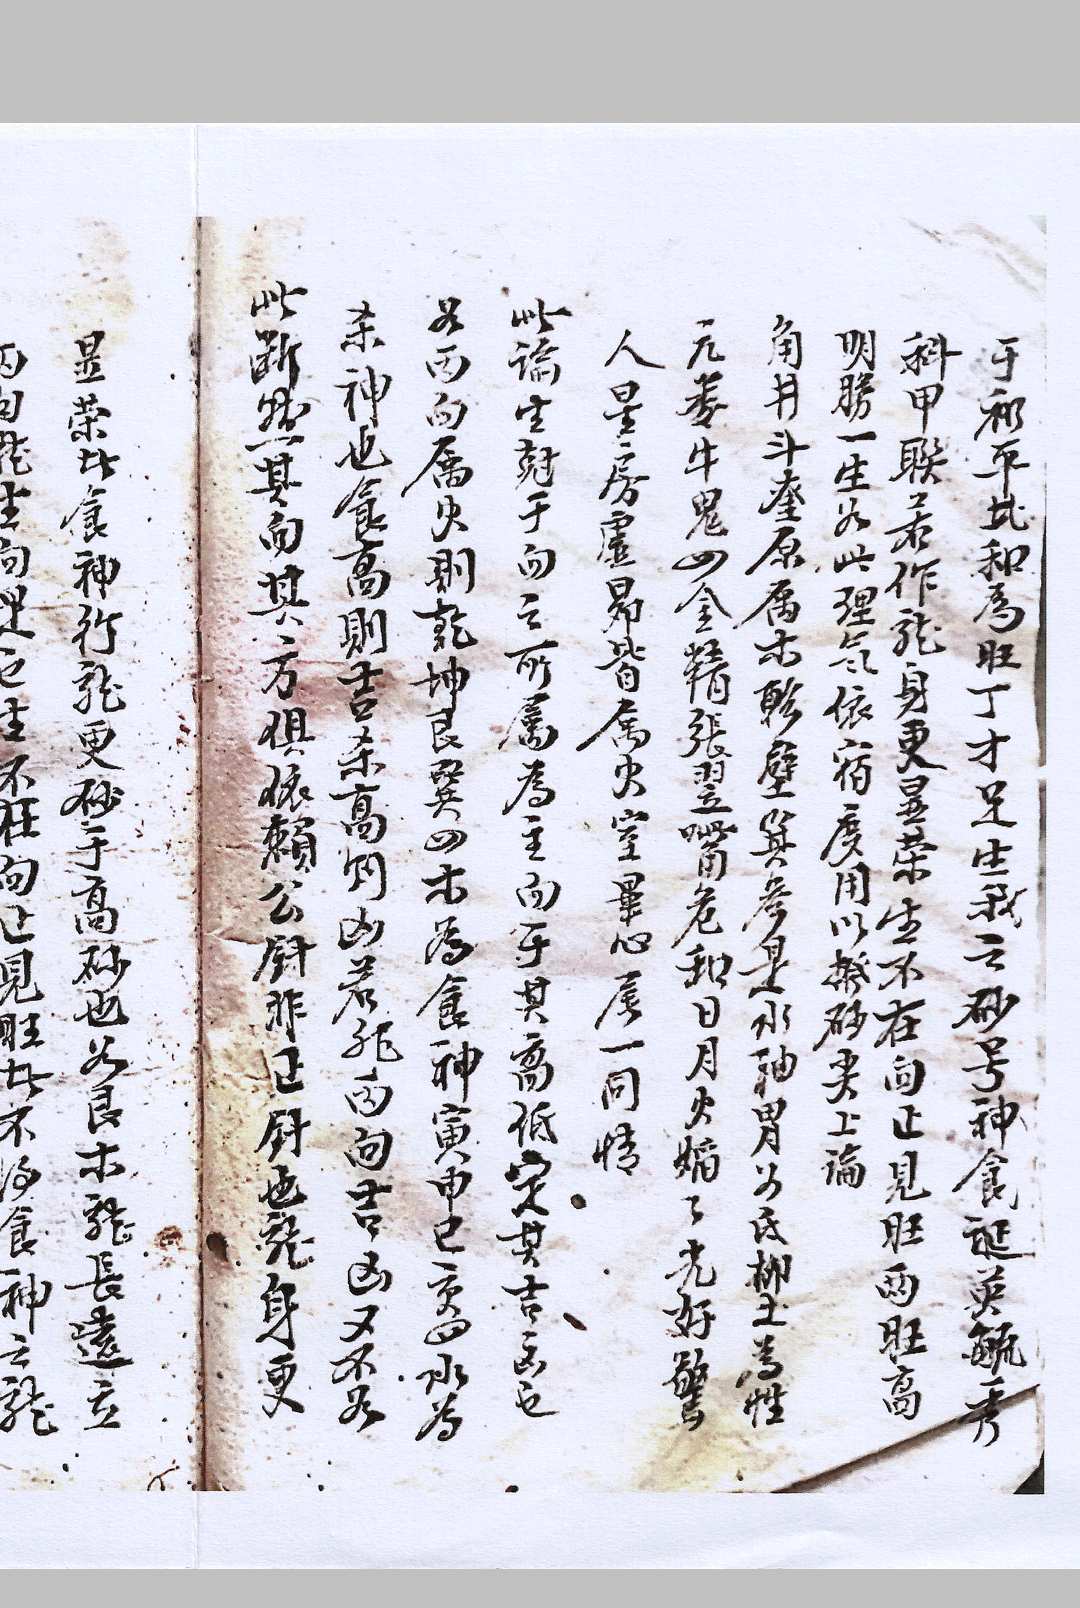 于和平比和為旺丁才足生我云砂号神食誕英毓秀
科甲联若作龍身更显荣生不在向正見旺两旺高
明勝一生如此理氣依宿度用以撥砂尖上論
角井斗奎原属木軫壁箕参是水神胃女氐柳土為性
亢婁牛鬼四金精張翌嘴危和日月火焰之光好驚
人星房虛昴皆属火室畢心尾一同情
此論生尅于向之所属為主向于其高低定其吉凶也
如丙向属火則乾坤艮巽四木為食神寅申巳亥四水為
杀神也食高則吉杀高则凶若龍丙向吉凶又不如
此断然其向其方俱依賴公針非正針也龍身更
显荣此食神行龍更砂于高砂也如艮木龍長遠立
丙向龍生向是也生不在向正見旺此不得食神云龍